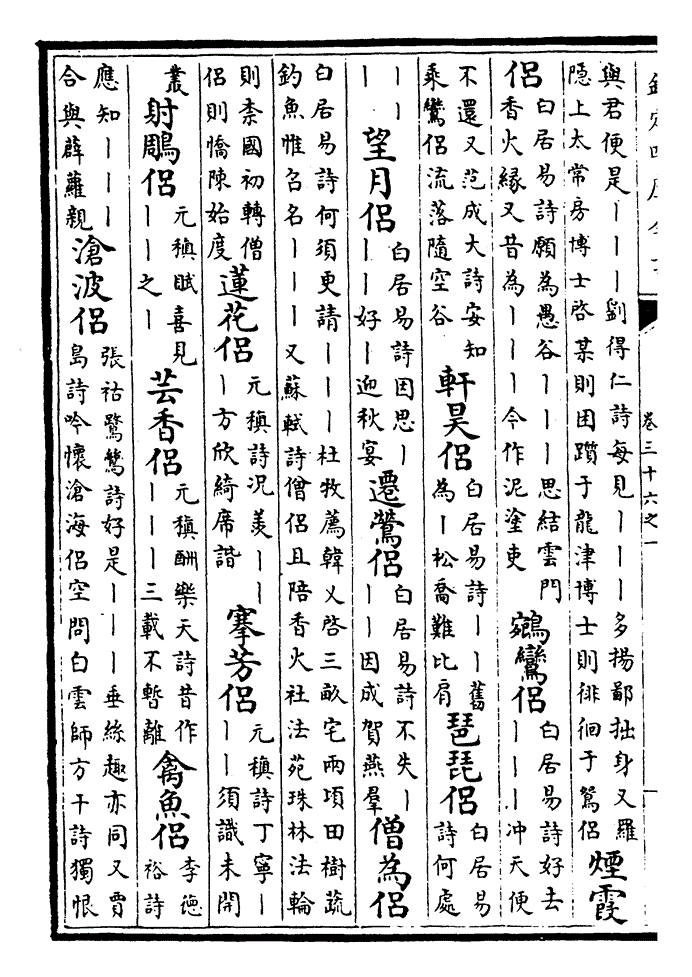 卷三十六之一
與君便是｜｜｜劉得仁詩每見｜｜｜多揚鄙拙身又羅
隱上太常房博士啓某則困躓于龍津博士則徘徊于鴛侶
煙霞
侶
白居易詩願為愚谷｜｜｜思結雲門
香火緣又昔為｜｜｜今作泥塗吏
鵷鸞侶
白居易詩好去
｜｜｜冲天便
不還又范成大詩安知
乘鸞侶流落隨空谷
軒昊侶
白居易詩｜｜舊
為｜松喬難比肩
琵琶侶
白居易
詩何處
｜｜
｜
望月侶
白居易詩因思｜
｜｜好｜迎秋宴
遷鶯侶
白居易詩不失｜
｜｜因成賀燕羣
僧為侶
白居易詩何須更請｜｜｜杜牧薦韓乂啓三畝宅兩項田樹蔬
釣魚惟召名｜｜｜又蘇軾詩僧侶且陪香火社法苑珠林法輪
則柰國初轉僧
侶則憍陳始度
蓮花侶
元稹詩況羨｜｜
｜方欣綺席諧
搴芳侶
元稹詩丁寧｜
｜｜須識未開
叢
射鵰侶
元稹賦喜見
｜｜之｜
芸香侶
元稹酬樂天詩昔作
｜｜｜三載不暫離
禽魚侶
李德
裕詩
應知｜｜｜
合與薜蘿親
滄波侶
張祜鷺鷥詩好是｜｜｜垂絲趣亦同又賈
島詩吟懷滄海侶空問白雲師方干詩獨恨